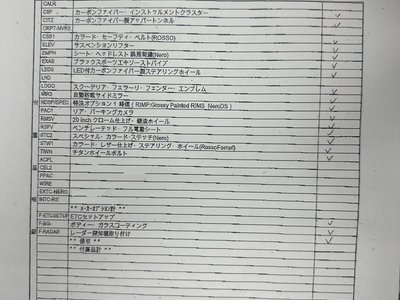 CALR
CBP カーボンファイバー・インストゥルメントクラスター
CITZ カーボンファイバー製アッパートンネル
ORPT-NVRS
CSB1 カラード・セーフティ・ベルト(ROSSO)
ELEV サスペンションリフター
EMPH シート・ヘッドレスト 跳馬刺繍(Nero)
EXAB ブラックスポーツエキゾーストパイプ
LEDS LED付カーボンファイバー製ステアリングホイール
LHD
LOGO スクーデリア・フェラーリ・フェンダー・エンブレム
MIR3 自動防眩サイドミラー
付 NDSP/SPEC 特注オプション1 時価 (RIMP:Glossy Painted RIMS NeroDS)
PAC1 リア・パーキングカメラ
RMSV 20 inch クローム仕上げ・鍛造ホイール
属 RSFV ベンチレーテッド・フル電動シート
STC2 スペシャル・カラード・ステッチ(Nero)
STW1 カラード・レザー仕上げ・ステアリング・ホイール(RossoFerrari)
TIWN チタンホイールボルト
ACFL
CEL2
PPAC
WIRE
EXTC-NERO
INTC-RS
** メーカーオプション計 **
F-ETCSETUP ETCセットアップ
F-BG ボディー・ガラスコーティング
F-RADAR レーダー探知機取り付け
** 値引 **
** 付属品計 **